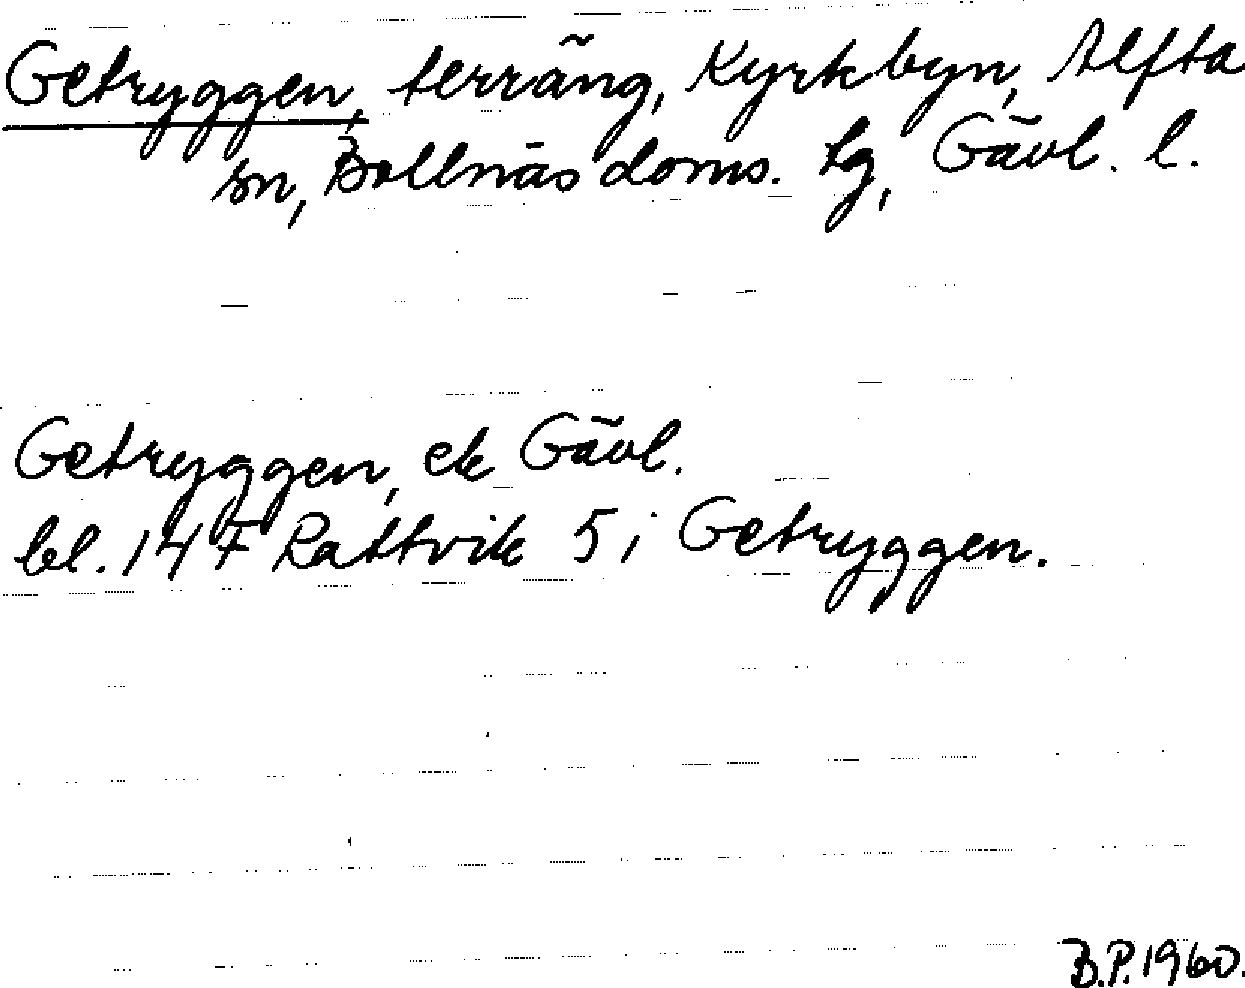 Getryggen, terräng, Kyrkbyn, Alfta
sn, Bollnäs doms. lg, Gävl. l.
Getryggen, ek Gävl.
bl. 147 Rättvik 5 i Getryggen.
B.P. 1960.